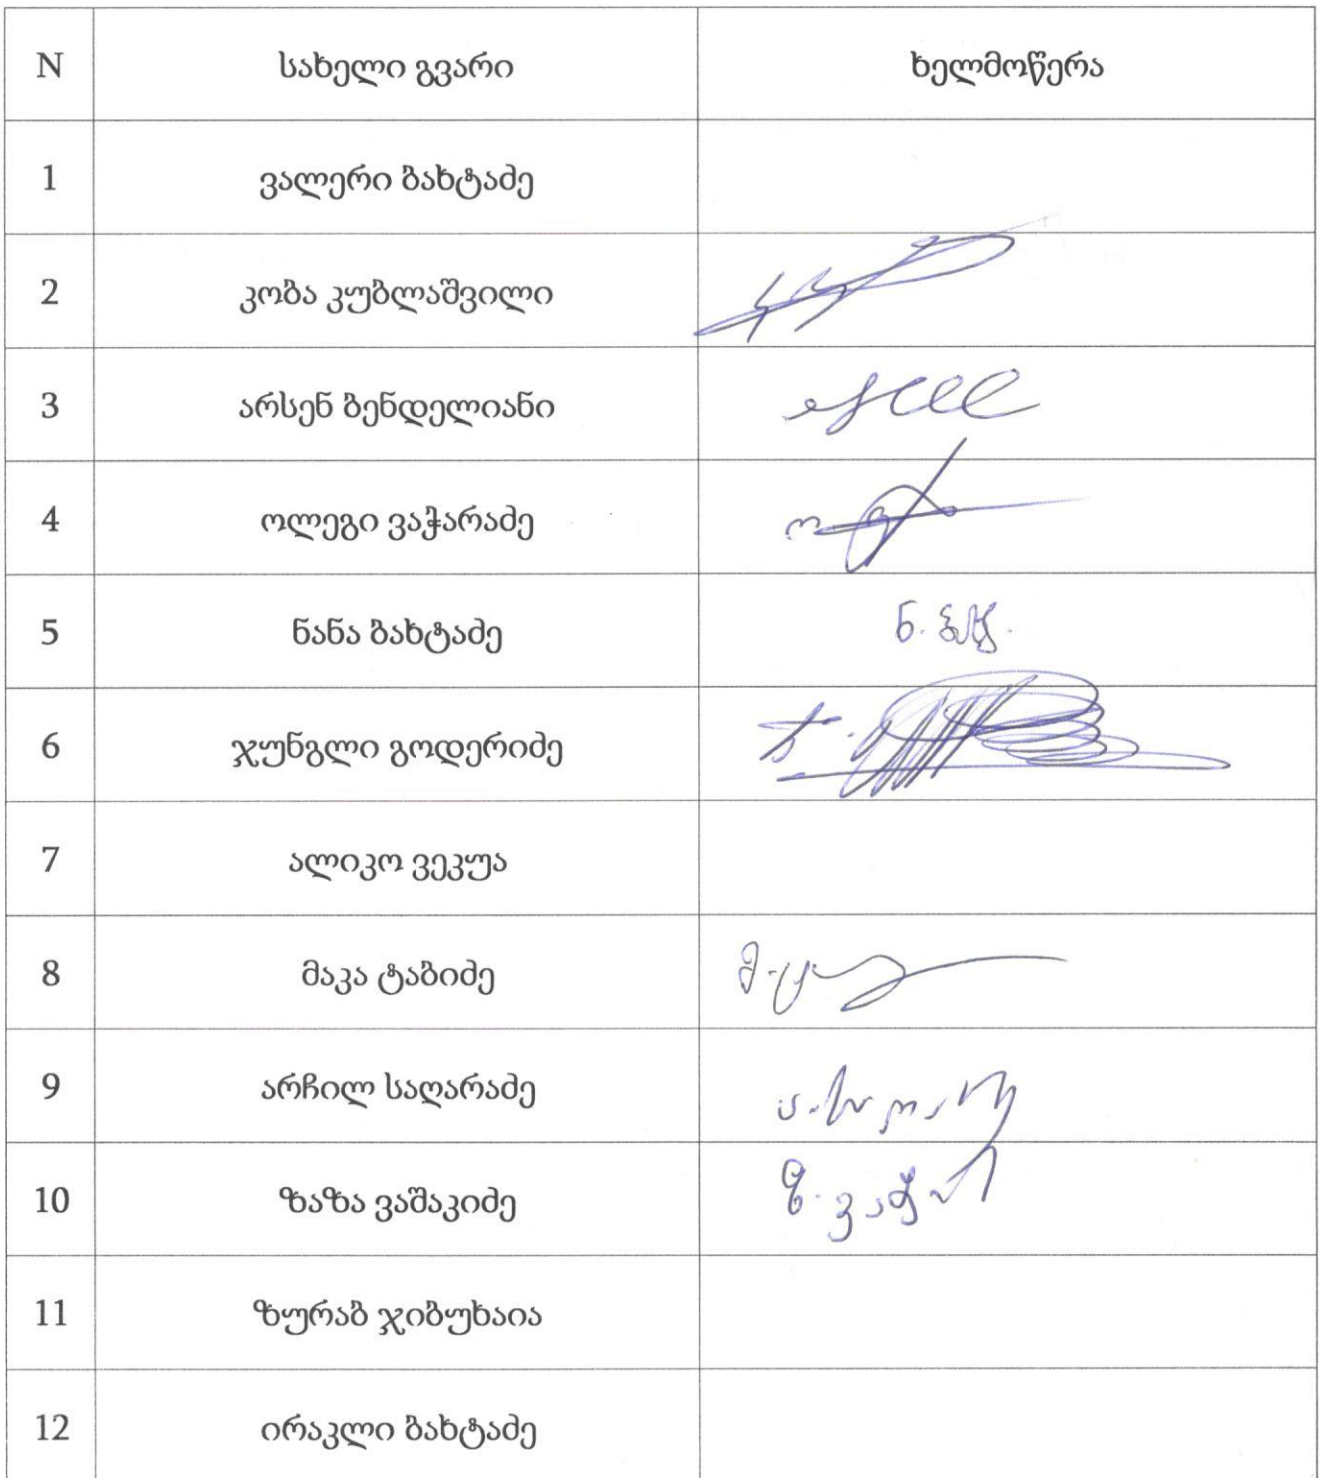 N სახელი გვარი ხელმოწერა
1 ვალერი ბახტაძე
2 კობა კუბლაშვილი
3 არსენ ბენდელიანი
4 ოლეგი ვაჭარაძე
5 ნანა ბახტაძე
6 ჯუნგლი გოდერიძე
7 ალიკო ვეკუა
8 მაკა ტაბიძე
9 არჩილ საღარაძე
10 ზაზა ვაშაკიძე
11 ზურაბ ჯიბუხაია
12 ირაკლი ბახტაძე